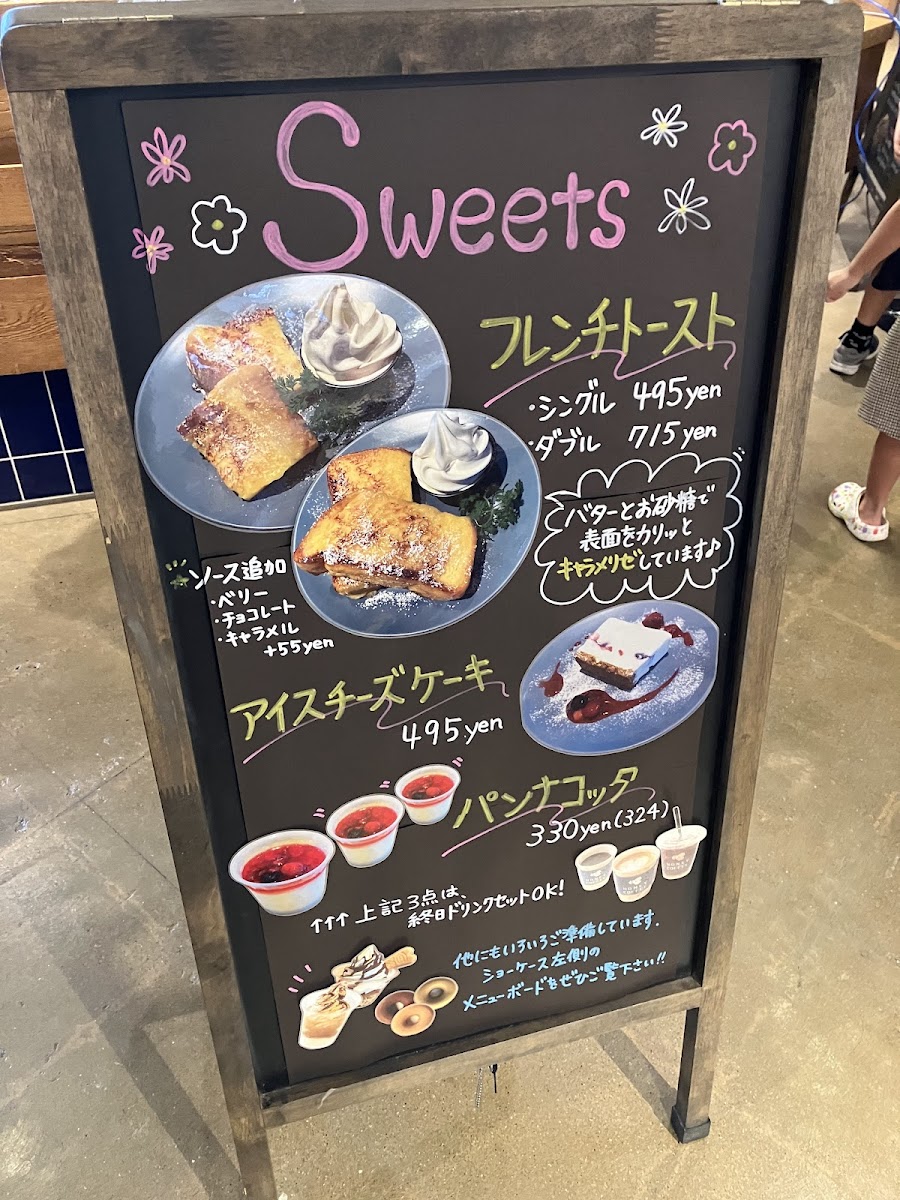 Sweets
フレンチトースト
・シングル 495yen
・ダブル 715yen
バターとお砂糖で
表面をカリッと
キャラメリゼしています♪
ソース追加
・ベリー
・チョコレート
・キャラメル
+55yen
アイスチーズケーキ
495yen
パンナコッタ
330yen(324)
↑↑↑上記3点は、
終日ドリンクセットOK!
他にもいろいろご準備しています.
ショーケース左側の
メニューボードをぜひご覧下さい!!